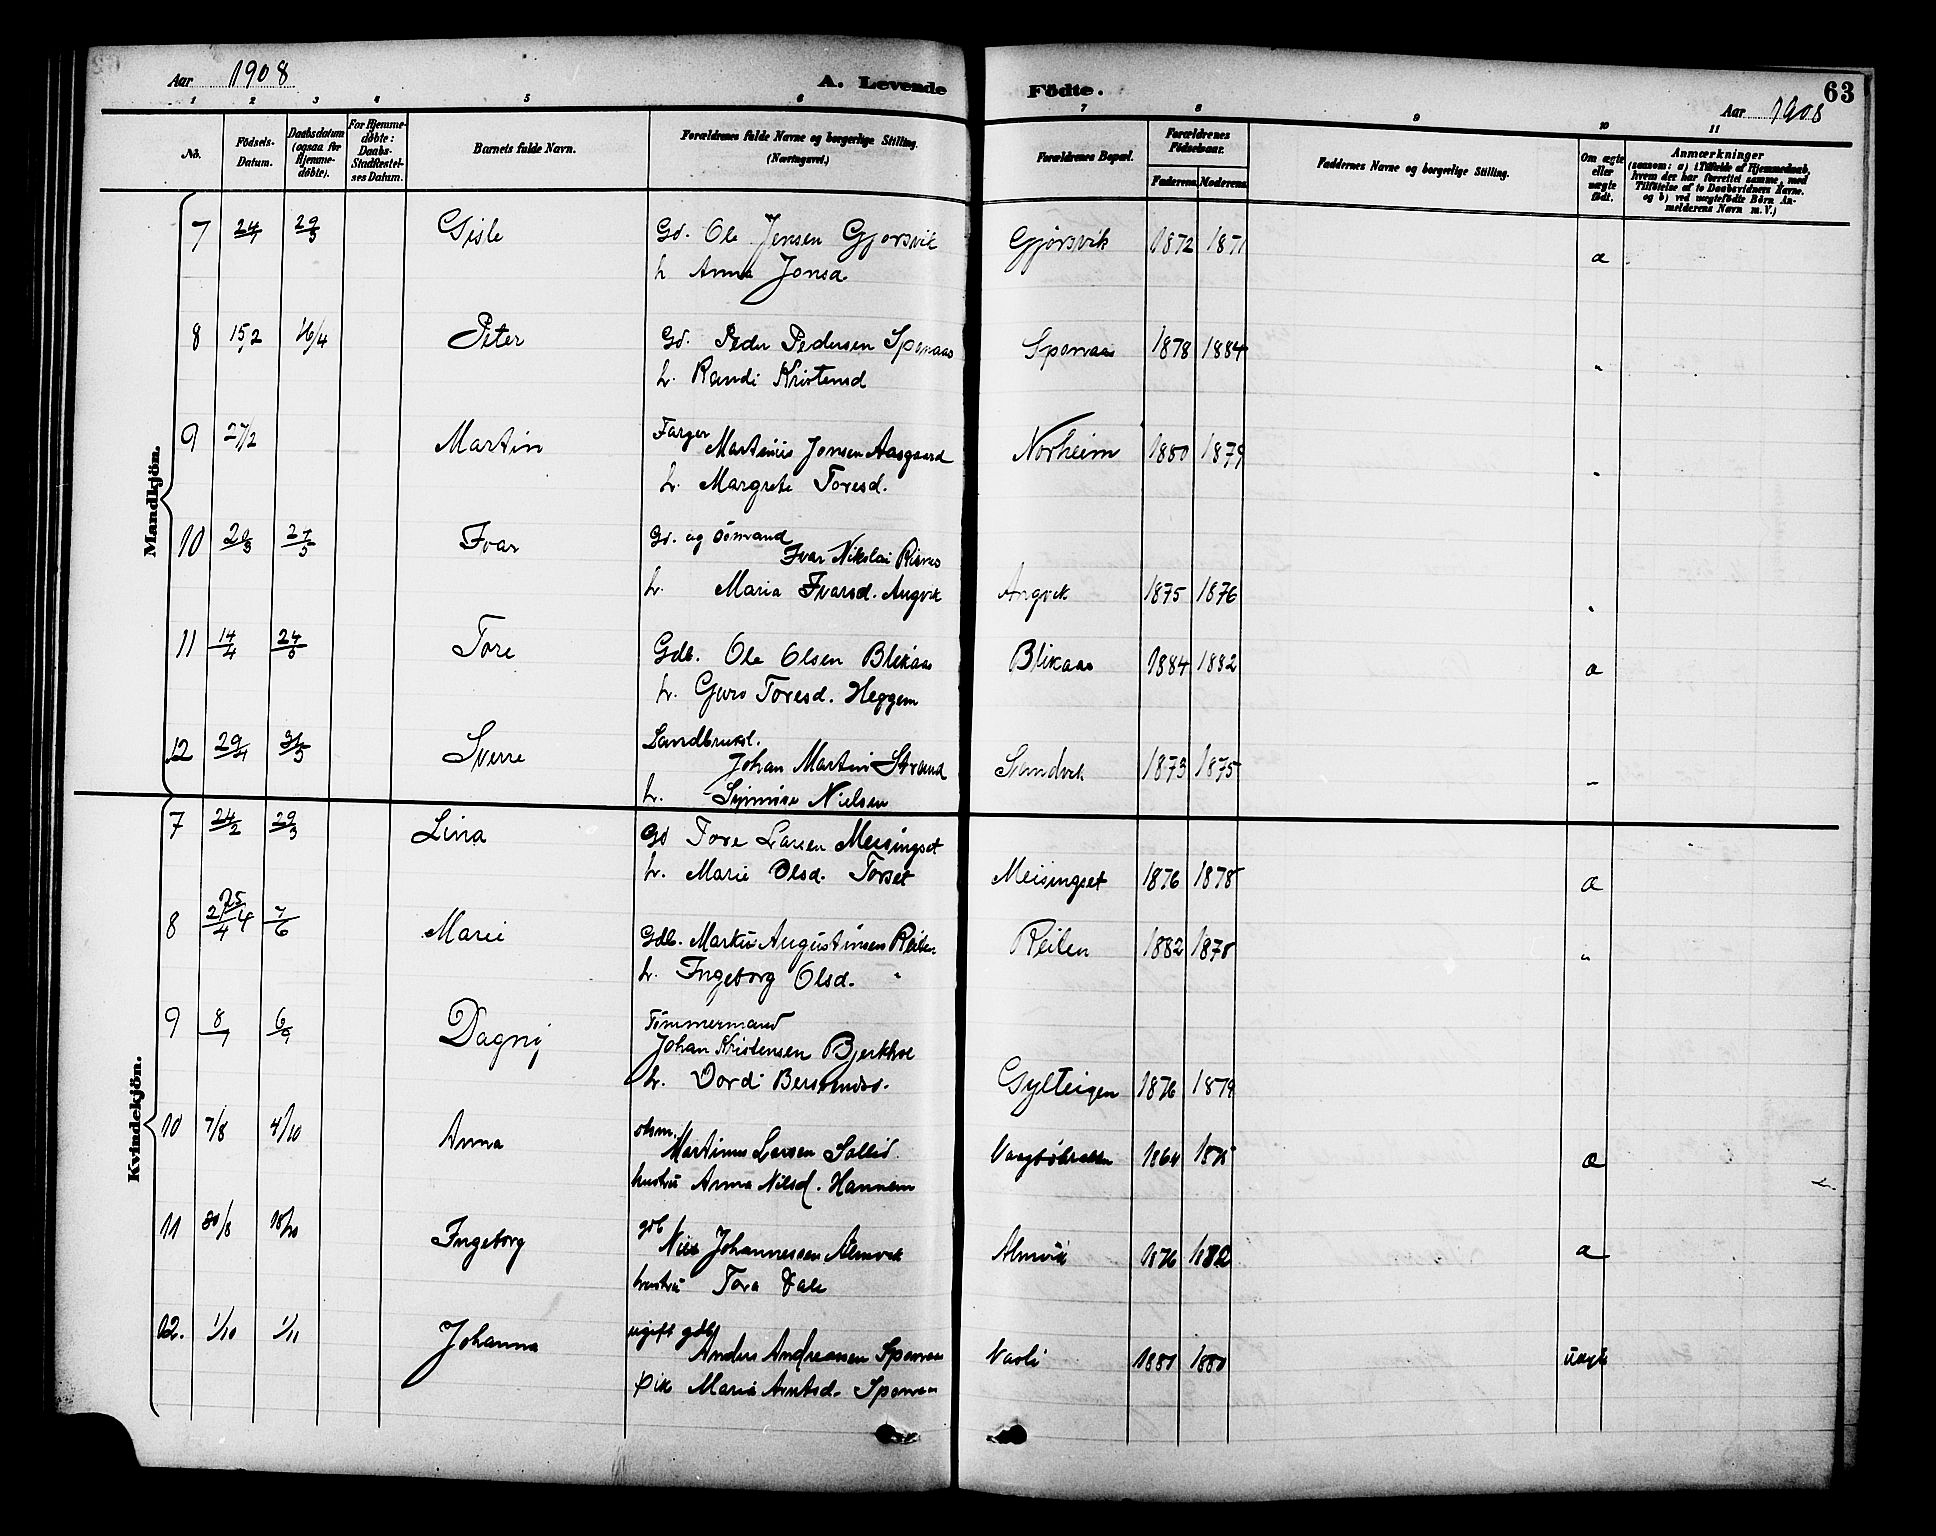 63
Aar 1908 A. Levende Födte. Aar 1908
1 2 3 4 5 6 7 8 9 10 11
No. Födsels-Datum. Daabsdatum (ogsaa for Hjemme-döbte). For Hjemme-döbte: Daabs-Stadfæstel-ses Datum. Barnets fulde Navn. Forældrenes fulde Navne og borgerlige Stilling. (Næringsvei.) Forældrenes Bopæl. Forældrenes Födselsaar. Faderens Moderens Faddernes Navne og borgerlige Stilling. Om ægte eller uægte födt. Anmærkninger (saasom: a) i Tilfælde af Hjemmedaab, hvem der har forrettet samme, med Tilföielse af to Daabsvidners Navne. og b) ved uægtefödte Börn An-melderens Navn m. V.)
Mandkjön.
7 24/1 29/3 Gisle Gd. Ole Jensen Gjørsvik Gjørsvik 1872 1871
h. Anna Jonsd. æ
8 15/2 16/4 Peter Gd. Peder Pedersen Sponaas Sponaas 1878 1884
h. Randi Kristensd "
9 27/2 Martin Farger Martinus Jonsen Aasgaard Norheim 1880 1879
h. Margrete Toresd. "
10 29/3 27/5 Ivar Gd. og Sømand
Ivar Nikolai Risnes
h. Maria Ivarsd. Angvik Angvik 1875 1876 "
11 14/4 24/5 Tore Gdb. Ole Olsen Blikaas Blikaas 1884 1882 æ
h. Guro Toresd. Heggem
12 29/4 31/5 Sverre Landbruksl.
Johan Martin Strand Sandvik 1873 1875 "
h. Synnøve Nielsen
Kvindekjön.
7 24/2 29/3 Lina Gd Tore Larsen Meisingset
h. Marie Olsd. Torset Meisingset 1876 1878 æ
8 25/4 7/6 Marie Gdb. Martin Augustinsen Reilen Reilen 1882 1878 "
h. Ingeborg Olsd. "
9 8/7 6/9 Dagny Tømmermand
Johan Kristensen Bjerkhol
h. Dordi Gylteigen 1876 1879
10 7/8 4/10 Anna
Martinus Larsen Sollid 1864 1875 æ
hustru Anna Nilsd. Hannem
11 30/8 18/10 Ingeborg gdb
Nils Johannessen Almvik Almvik 1876 1882 æ
hustru Tora Vale
12. 1/10 1/11 Johanna ugift gdb
Anders Andreassen Sponaas Vaoli 1881 1880 uægte
Pik Maria Arntsd. Sponaas